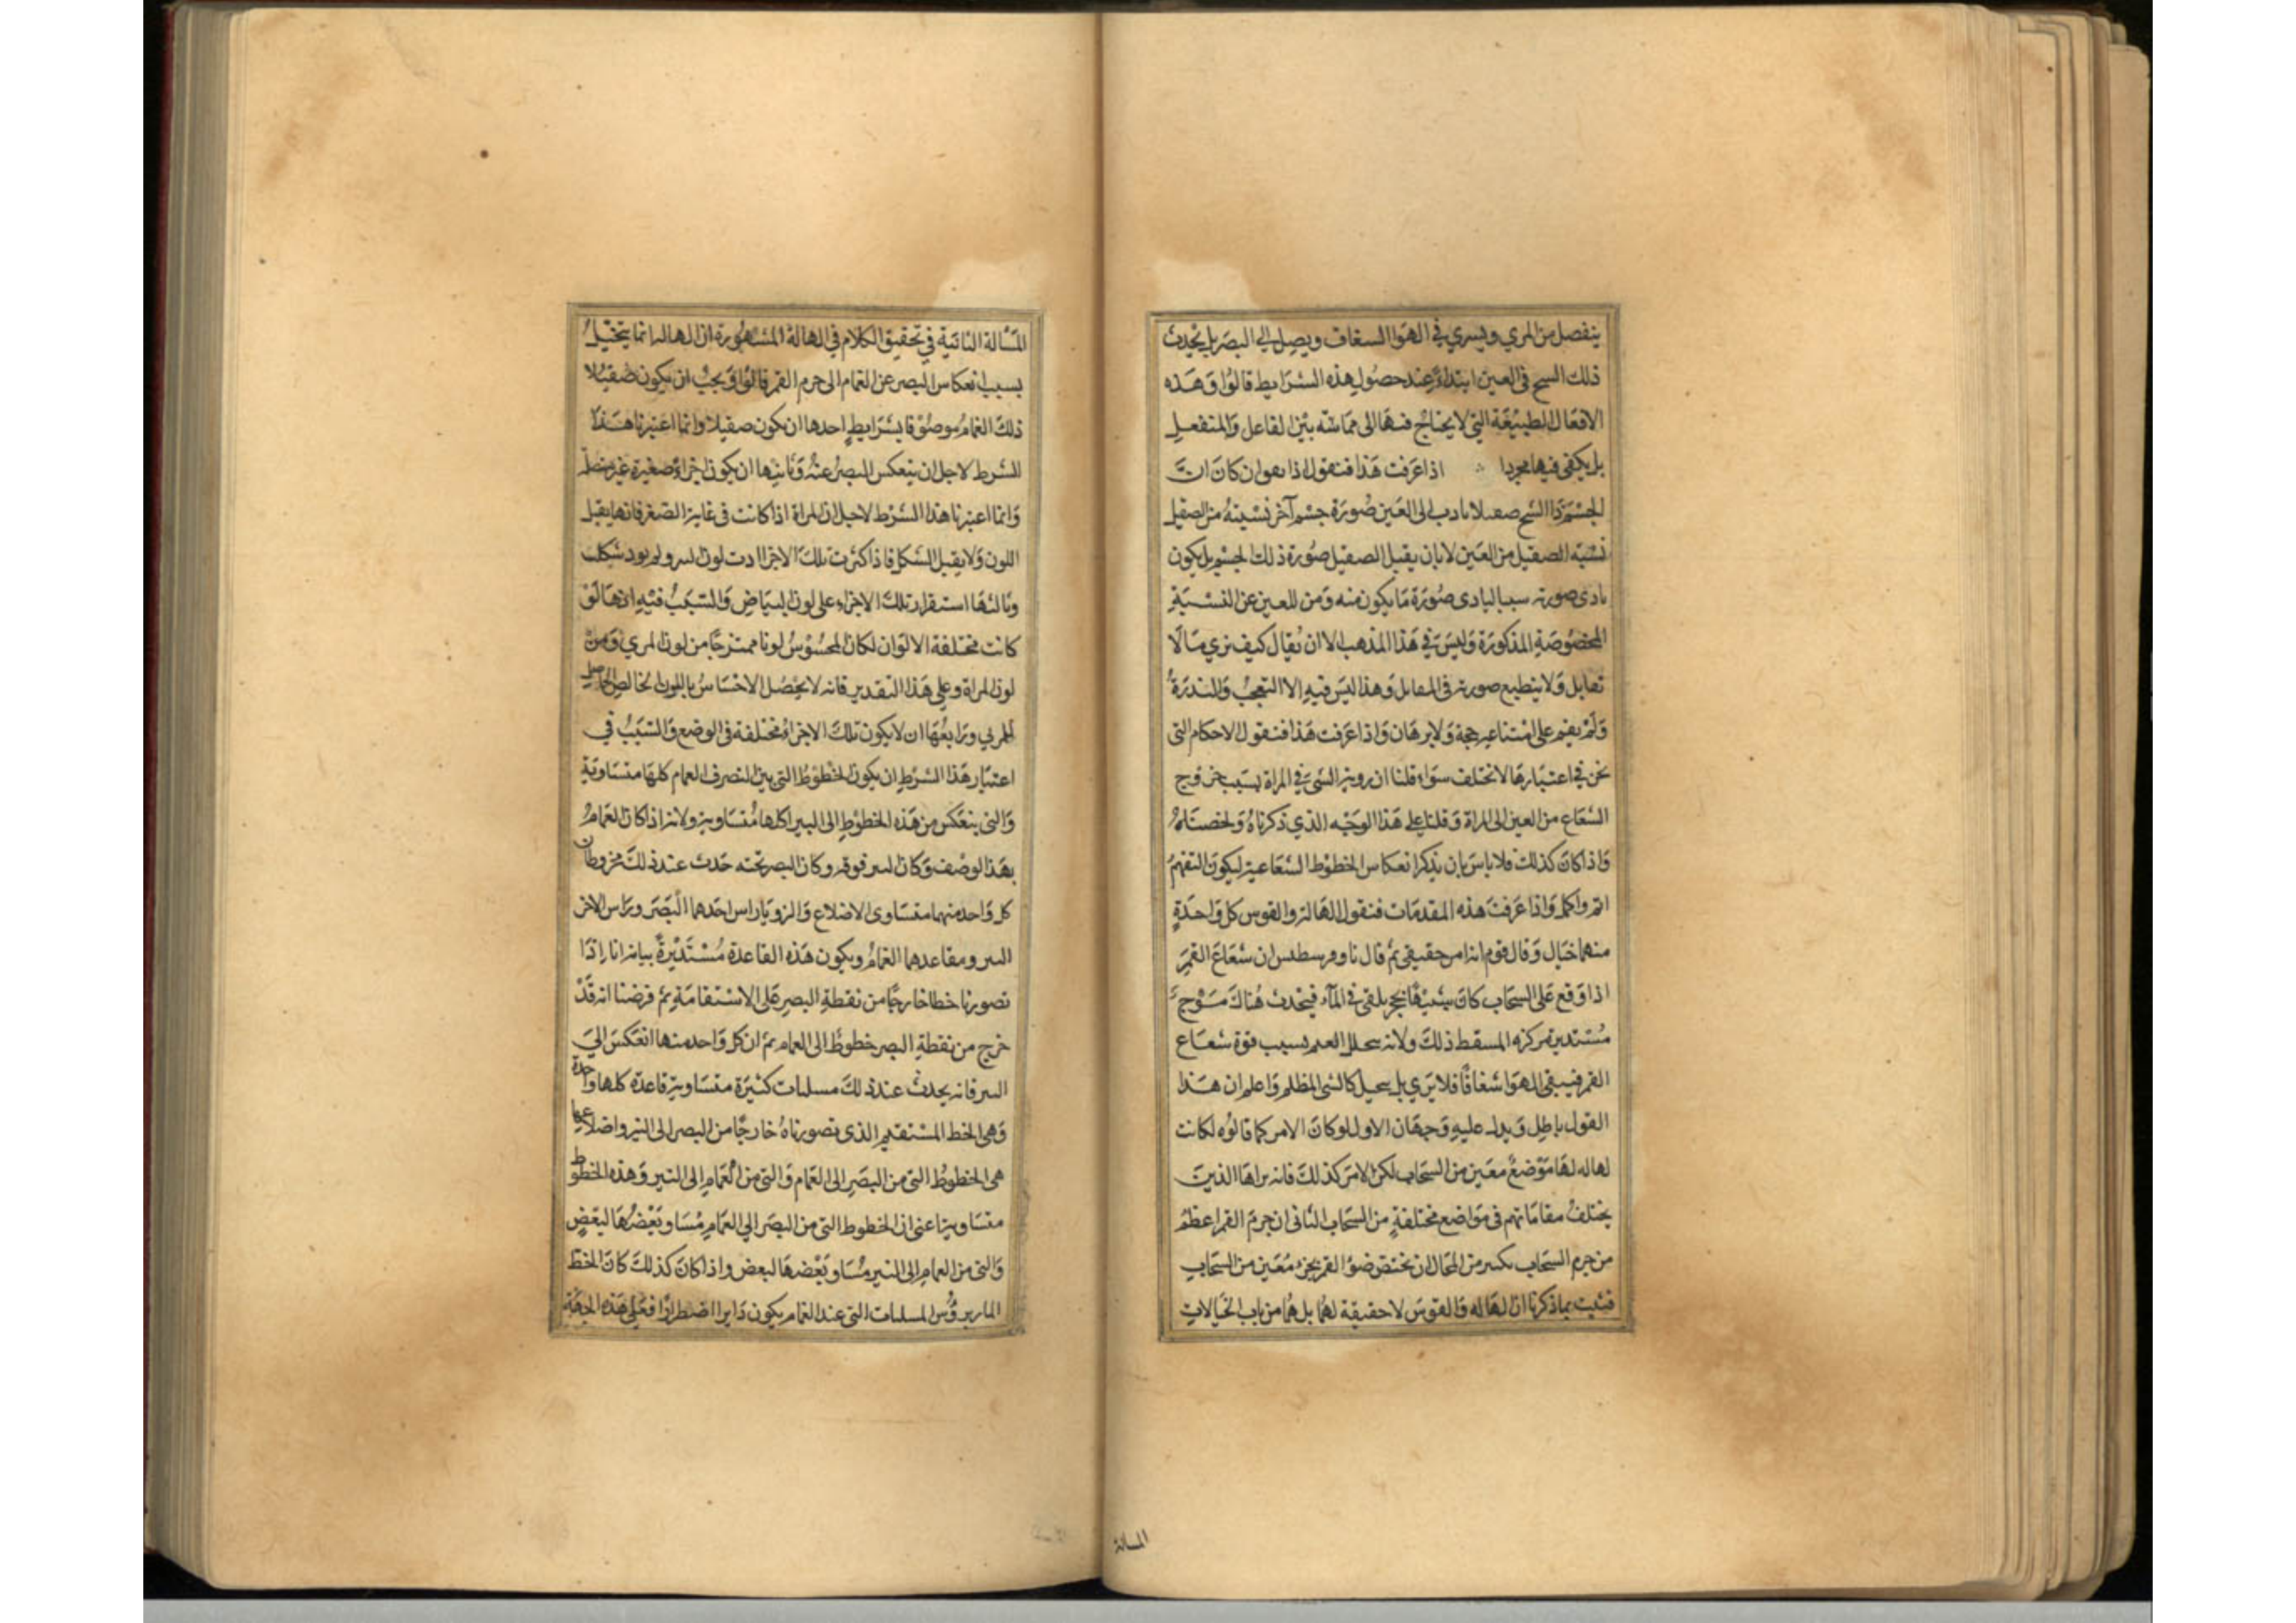 ينفصل من المري ويسري في الهوا السفاف ويصل الى البصر بل يحدث
ذلك السبح في العين ابتداء عند حصول هذه الشرايط قالوا وهذه
الافعال الطبيعة التي لا يحتاج فيها الى مماسه بين الفاعل والمنفعل
بل يكفي فيها مجردا اذا عرفت هذا فنقول اذا هو ان كان ان
الجسم ذا السبح صقيلا العين صورة جسم آخر نسبته من الصقيل
نسبة الصقيل من العين لا بان يقبل الصقيل صورة ذلك الجسم بل يكون
صورته صورة ما يكون منه ومن للعين عن النسبة
المخصوصة المذكورة وليس في هذا المذهب الا ان يقال كيف نري ما لا
تعابل ولا ينطبع صورته في المقابل وهذا ليس فيه الا التعجب والندرة
ولم يقم على امتناعه حجة ولا برهان واذا عرفت هذا فنقول الاحكام التى
نحن في اعتبارها لا تختلف سواء قلنا ان روية الشي في المراة بسبب خروج
الشعاع من العين الى المراة وقلنا على هذا الوجه الذي ذكرناه ولخصناه
واذا كان كذلك فلا باس بان نذكر انعكاس الخطوط الشعاعية ليكون التفهم
اتم واكمل واذا عرفت هذه المقدمات فنقول الهالة والقوس كل واحدة
منهما خيال وقال قوم انه امر حقيقي ثم قال ناوفرسطس ان شعاع القمر
اذا وقع على السحاب كان شبيها بحجر يلقى في الماء فيحدث هناك موج
مستديرة مركزه المسقط ذلك ولانه يحلل الغيم بسبب قوة شعاع
القمر فيبقى الهوا شفافا فلا يري بل كالشي المظلم واعلم ان هذا
القول باطل ويدل عليه وجهان الاول لو كان الامر كما قالوه لكانت
لهاله لها موضع معين من السحاب لكن الامر كذلك فانه يراها الذين
يختلف مقاماتهم في مواضع مختلفة من السحاب الثاني ان جرم القمر اعظم
من جرم السحاب بكثير من المحال ان يختص ضوا القمر بجزء معين من السحاب
فثبت بما ذكرنا ان الهاله والقوس لا حقيقة لهما بل هما من باب الخيالات
المساله
المسألة الثانية في تحقيق الكلام في الهالة المشهورة ان الهاله انما يتخيل
بسبب انعكاس البصر عن الغمام الى جرم القمر قالوا ويجب ان يكون صقيلا
ذلك الغمام موصوفا بشرايط احدها ان يكون صقيلا وانما اعتبرنا هذا
الشرط لاجل ان ينعكس البصر عنه وثانيها ان يكون اجزاؤه صغيرة غير متصلة
وانما اعتبرنا هذا الشرط لاجل ان المراة اذا كانت في غاية الصغر فانها يقبل
اللون ولا يقبل الشكل فاذا كثرت تلك الاجزا ادت لون السر ولم يود شكله
وثالثها استقرار تلك الاجزاء على لون البياض والسبب فيه انها لو
كانت مختلفة الالوان لكان المحسوس لونا ممتزجا من لون المري ومن
لون المراة وعلى هذا التقدير فانه لا يحصل الاحساس باللون الخالص الحاصل
المري ورابعها ان لا يكون تلك الاجزاء مختلفة في الوضع والسبب في
اعتبار هذا الشرط ان يكون الخطوط التي بين النصر والغمام كلها متساوية
والتي ينعكس من هذه الخطوط الى النير كلها متساوية ولانه اذا كان الغمام
بهذا الوصف وكان السر فوقه وكان البصر تحته حدث عند ذلك مخروطان
كل واحد منهما متساوى الاضلاع والزوايا راس احدهما البصر وراس الاخر
السر ومقاعدهما الغمام ويكون هذه القاعدة مستديرة بيانه انا اذا
تصورنا خطا خارجا من نقطة البصر على الاستقامة ثم فرضنا انه قد
خرج من نقطة البصر خطوط الى الغمام ثم ان كل واحد منها انعكس الى
السر فانه يحدث عند ذلك مسلسات كثيرة متساوية قاعدة كلها واحدة
وهى الخط المستقيم الذى تصورناه خارجا من البصر الى النير واضلاعها
هى الخطوط التى من البصر الى الغمام والتى من الغمام الى النير وهذه الخطوط
متساوية اعنى ان الخطوط التى من البصر الى الغمام مساو بعضها لبعض
والتى من الغمام الى النير مساو بعضها لبعض واذا كان كذلك كان الخط
المار بروس المسلسات التى عند الغمام يكون دايرا اضطرارا فعلى هذه الجهة